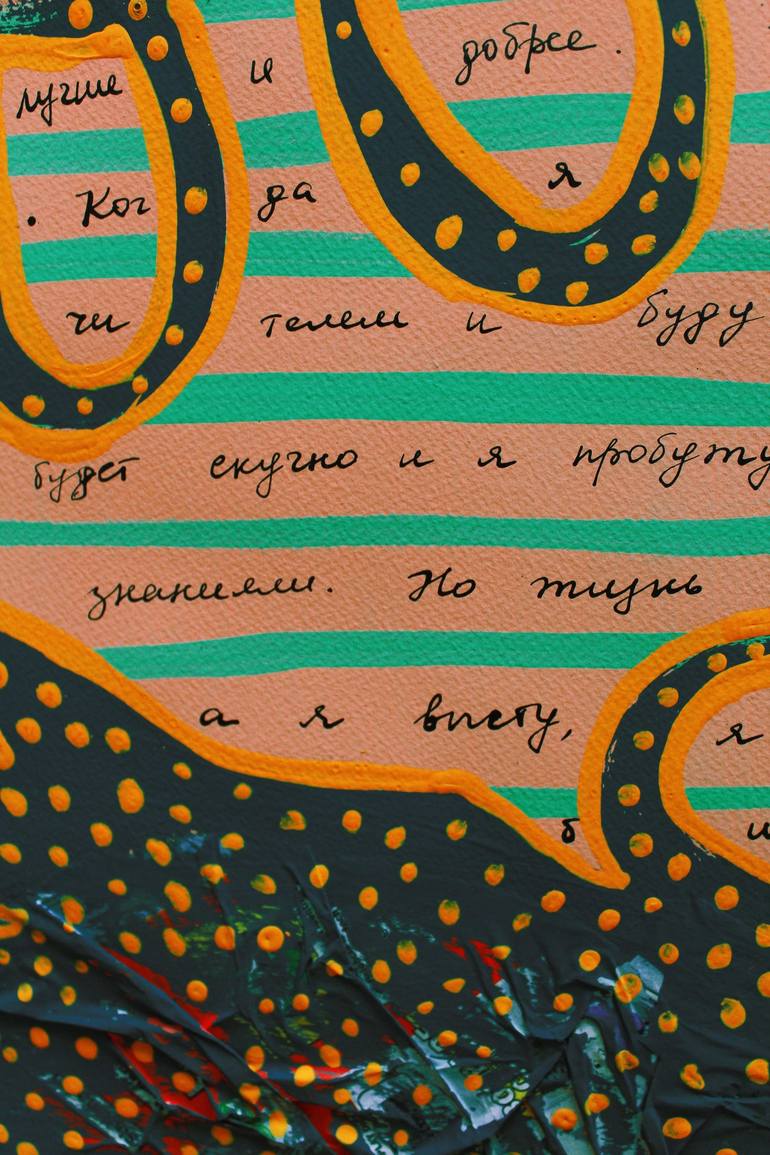 лучше и добрее.
. Ког да я
чи телем и буду
будет скучно и я пробужу
знаниями. Но жизнь
а я висту, я
б и